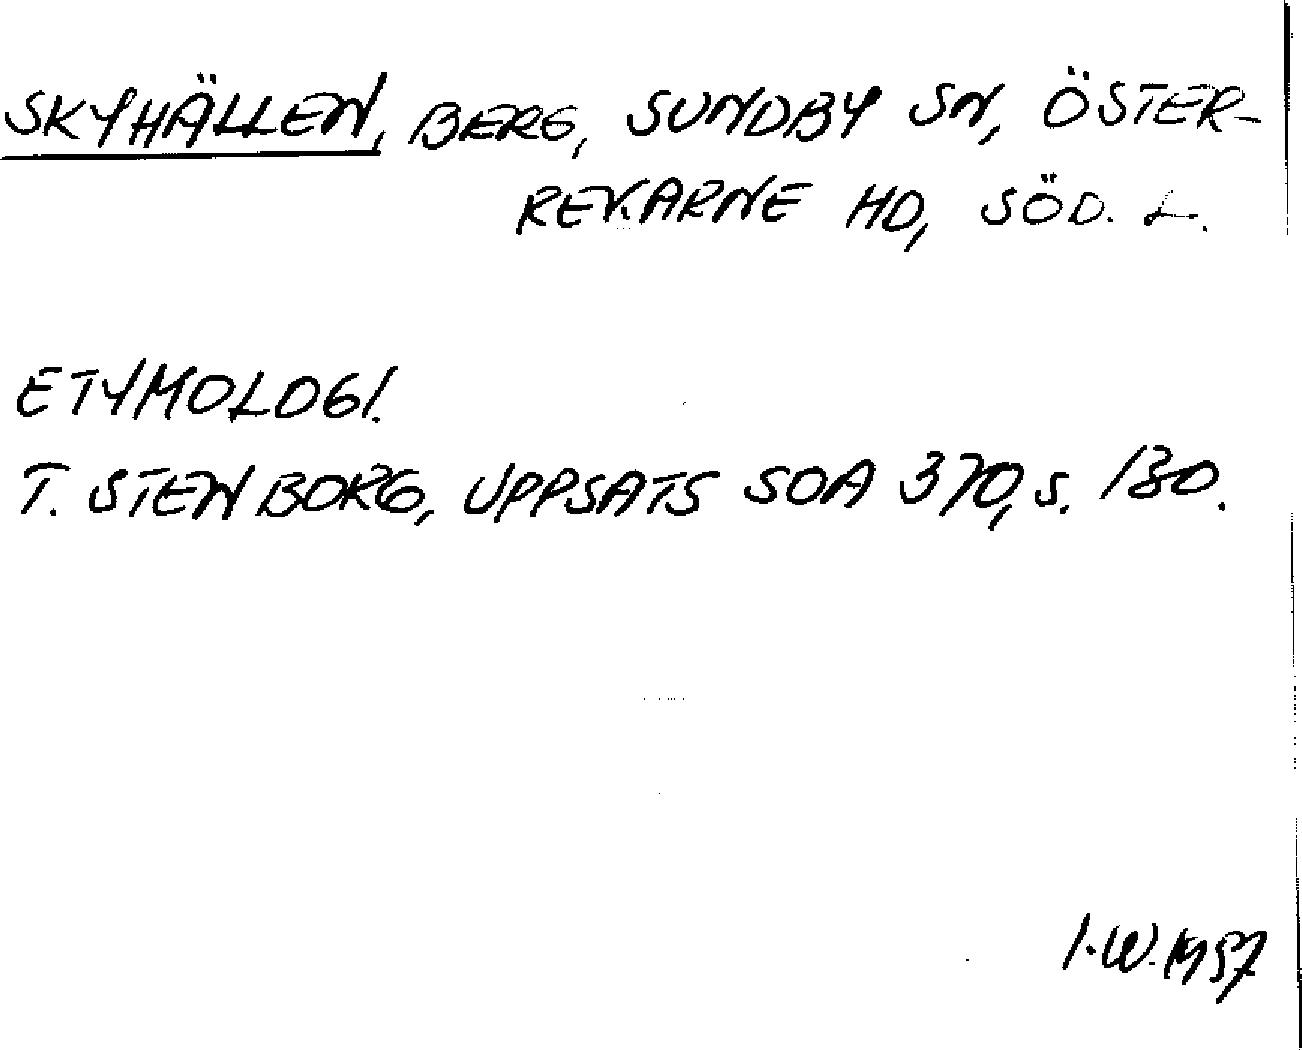 SKYHÄLLEN, BERG, SUNDBY SN, ÖSTER-
REKARNE HD, SÖD. L.
ETYMOLOGI.
T. STENBORG, UPPSATS SOA 370, s. 130.
I.W. 1987